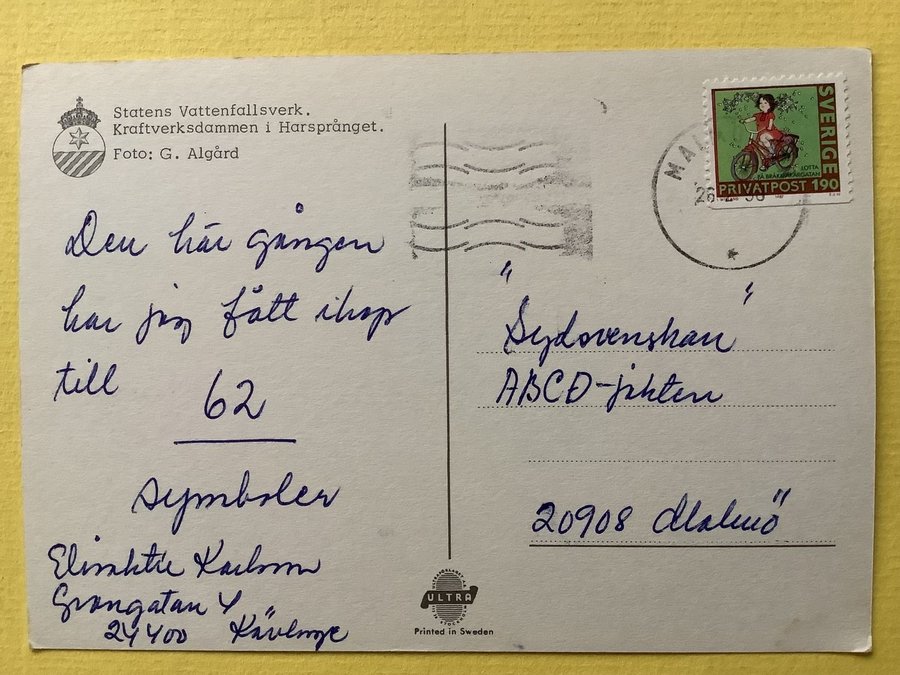 Statens Vattenfallsverk.
Kraftverksdammen i Harsprånget.
Foto: G. Algård
Den här gången
har jag fått ihop
till
62
symboler
Karlsson
Grangatan 4
24400 Kävlinge
SVERIGE
LOTTA
PÅ BRÅKMAKARGATAN
PRIVATPOST 190
"Sydsvenskan"
ABCD-jakten
20908 Malmö
ULTRA
Printed in Sweden